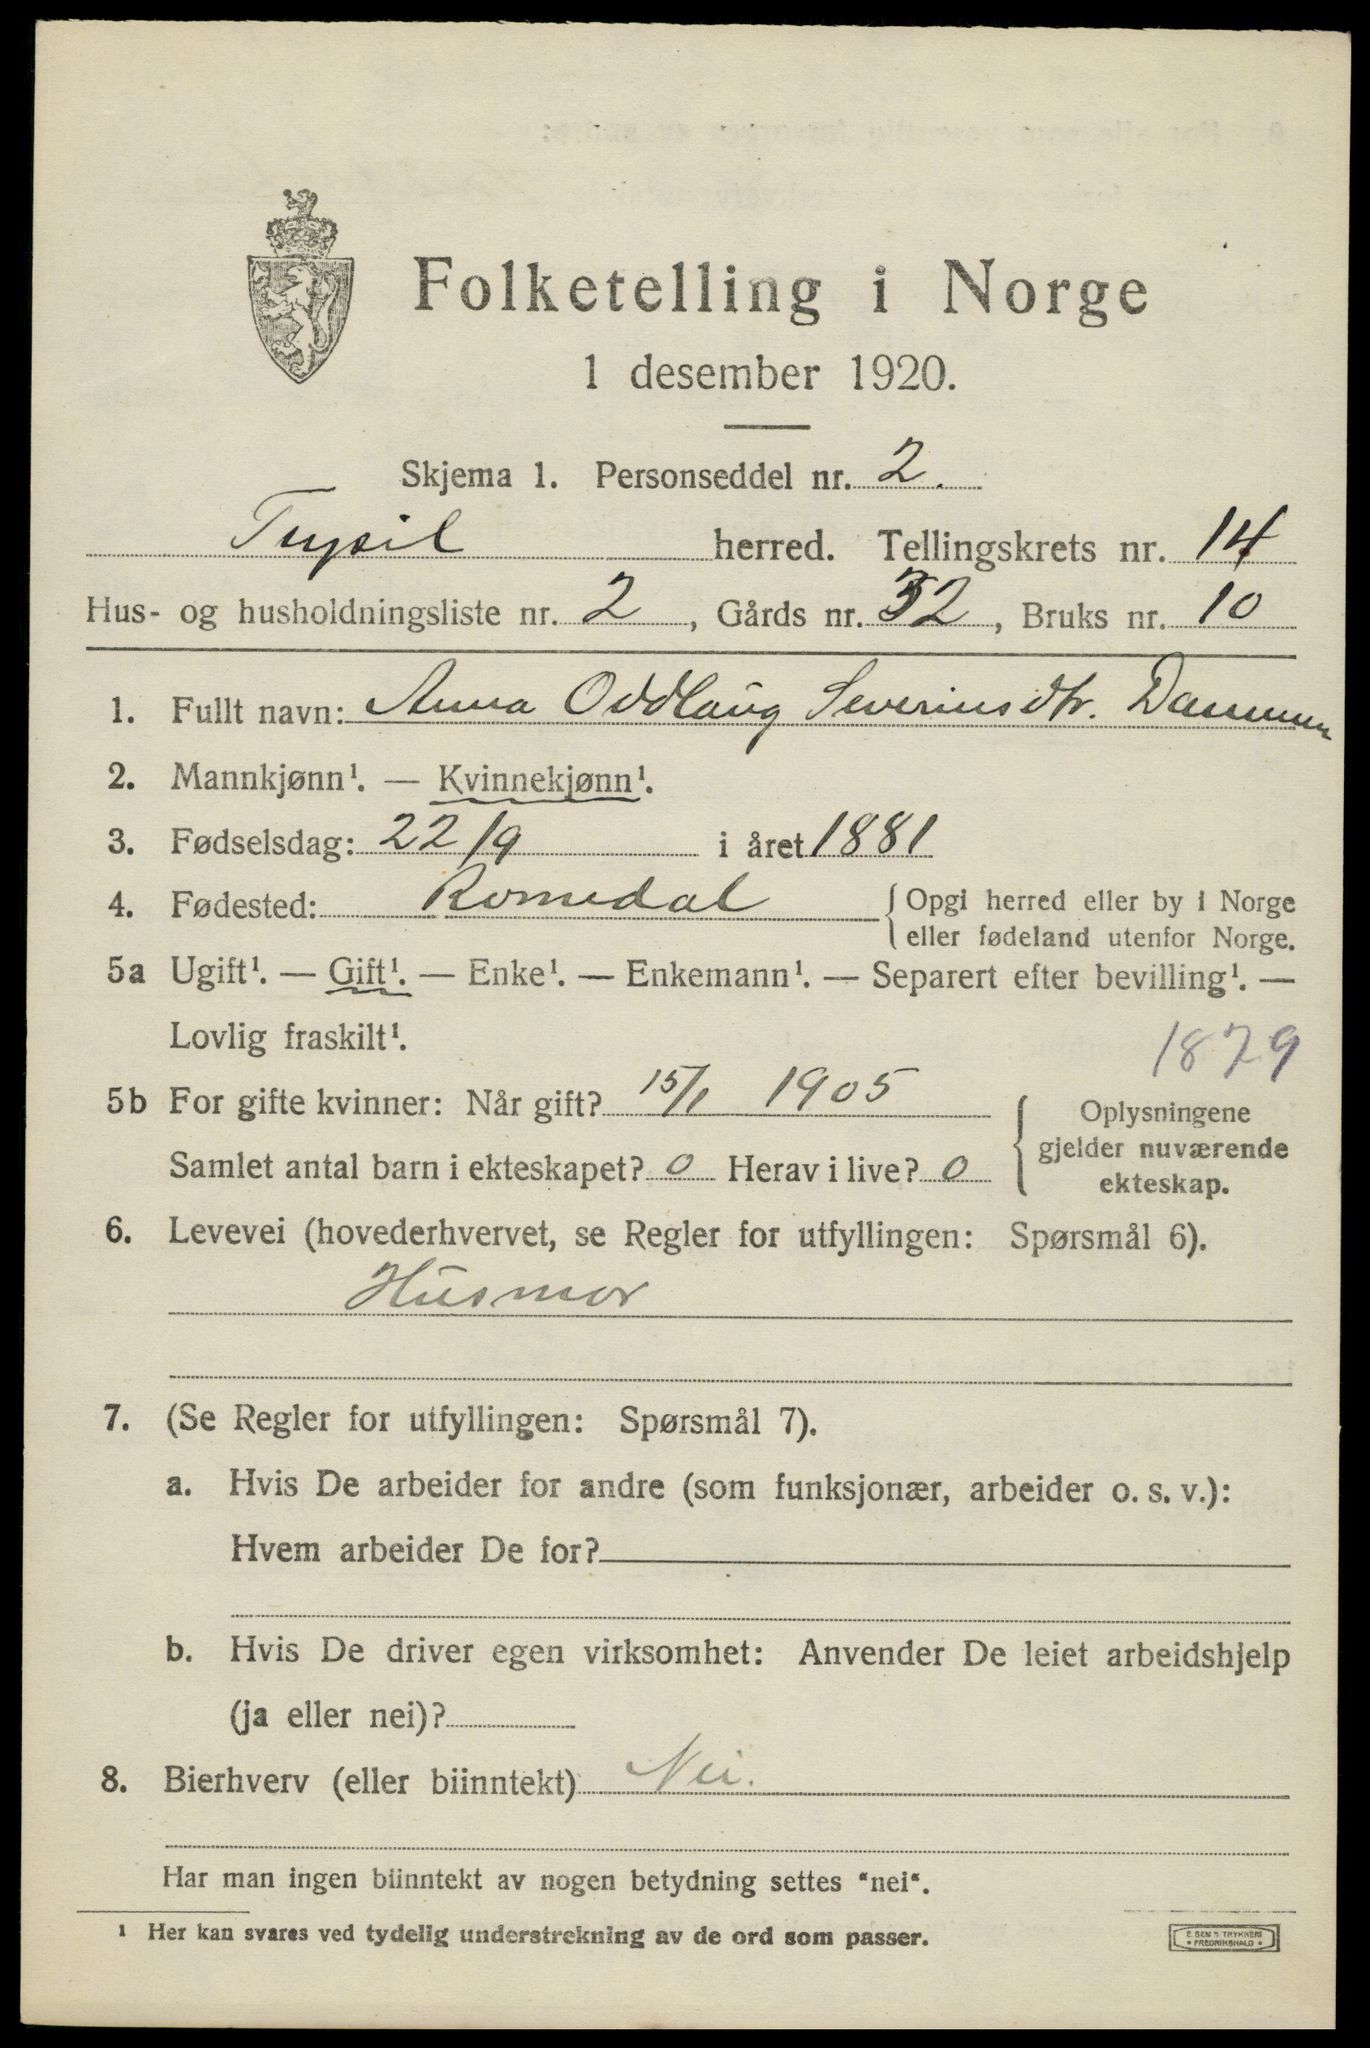 Folketelling i Norge
1 desember 1920.
Skjema 1. Personseddel nr. 2.
Trysil herred. Tellingskrets nr. 14
Hus- og husholdningsliste nr. 2, Gårds nr. 32, Bruks nr. 10
1. Fullt navn: Anna Oddlaug Severinsdtr. Dammen
2. Mannkjønn¹. — Kvinnekjønn¹.
3. Fødselsdag: 22/9 i året 1881
4. Fødested: Romedal {Opgi herred eller by i Norge
eller fødeland utenfor Norge.
5a Ugift¹. — Gift¹. — Enke¹. — Enkemann¹. — Separert efter bevilling¹. —
Lovlig fraskilt¹.
1879
5b For gifte kvinner: Når gift? 15/1 1905
Samlet antal barn i ekteskapet? 0 Herav i live? 0
Oplysningene
gjelder nuværende
ekteskap.
6. Levevei (hovederhvervet, se Regler for utfyllingen: Spørsmål 6).
Husmor
7. (Se Regler for utfyllingen: Spørsmål 7).
a. Hvis De arbeider for andre (som funksjonær, arbeider o. s. v.):
Hvem arbeider De for?
b. Hvis De driver egen virksomhet: Anvender De leiet arbeidshjelp
(ja eller nei)?
8. Bierhverv (eller biinntekt) Nei.
Har man ingen biinntekt av nogen betydning settes "nei".
¹ Her kan svares ved tydelig understrekning av de ord som passer.
TRYKKERI
FREDRIKSHALD